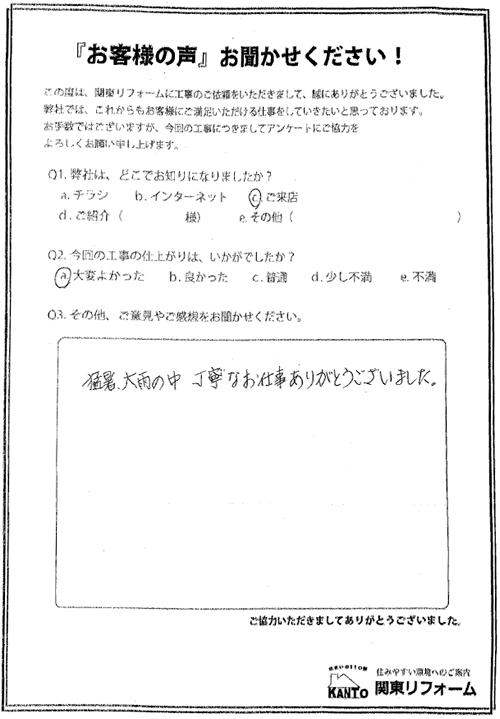 『お客様の声』お聞かせください！
この度は、関東リフォームに工事のご依頼をいただきまして、誠にありがとうございました。
弊社では、これからもお客様にご満足いただける仕事をしていきたいと思っております。
お手数ではございますが、今回の工事につきましてアンケートにご協力を
よろしくお願い申し上げます。
Q1. 弊社は、どこでお知りになりましたか？
a. チラシ b. インターネット c. ご来店
d. ご紹介（ 様） e. その他（ ）
Q2. 今回の工事の仕上がりは、いかがでしたか？
a. 大変よかった b. 良かった c. 普通 d. 少し不満 e. 不満
Q3. その他、ご意見やご感想をお聞かせください。
猛暑、大雨の中 丁寧なお仕事ありがとうございました。
ご協力いただきましてありがとうございました。
住まいの110番
KANTO
住みやすい環境へのご案内
関東リフォーム